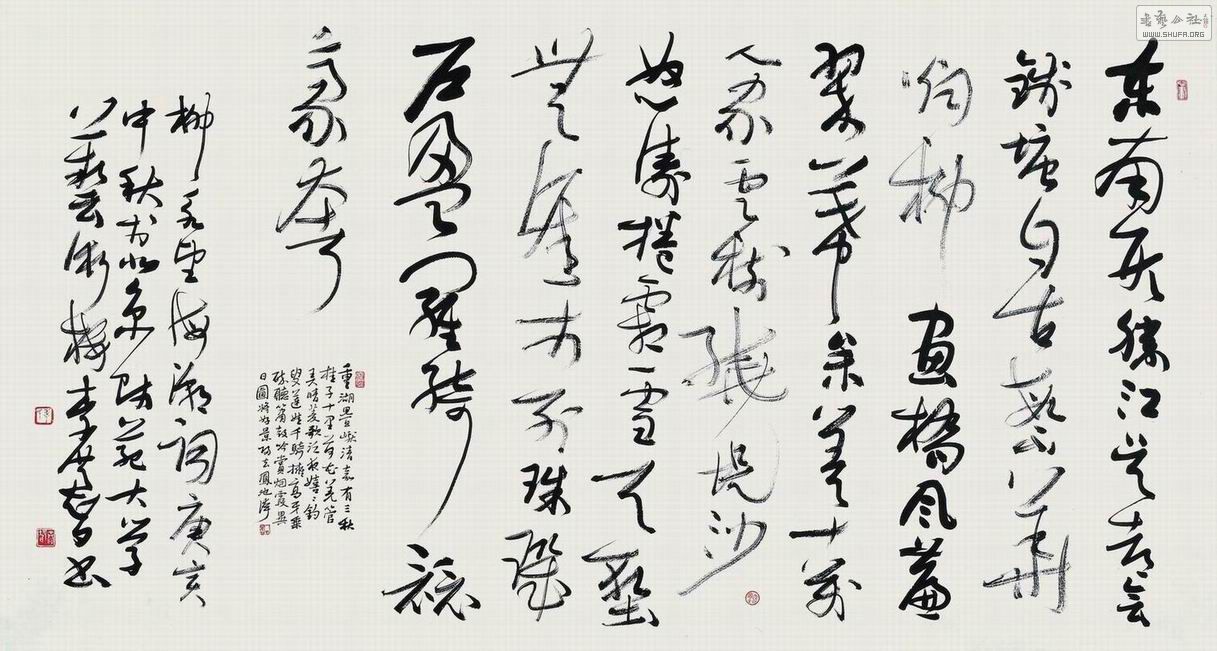 東南形勝江吴都会
錢塘自古繁華
烟柳 画橋風簾
翠幕參差十萬
人家雲樹繞堤沙
怒濤捲霜雪天塹
無涯市列珠璣
户盈羅綺 競
豪奢
重湖疊巘清嘉有三秋
桂子十里荷花羌管
弄晴菱歌泛夜嬉嬉釣
叟蓮娃千騎擁高牙乘
醉聽簫鼓吟賞烟霞異
日圖將好景去鳳池誇
柳永望海潮詞庚寅
中秋於北京師范大学
藝術樓李書
WWW.SHUFA.ORG